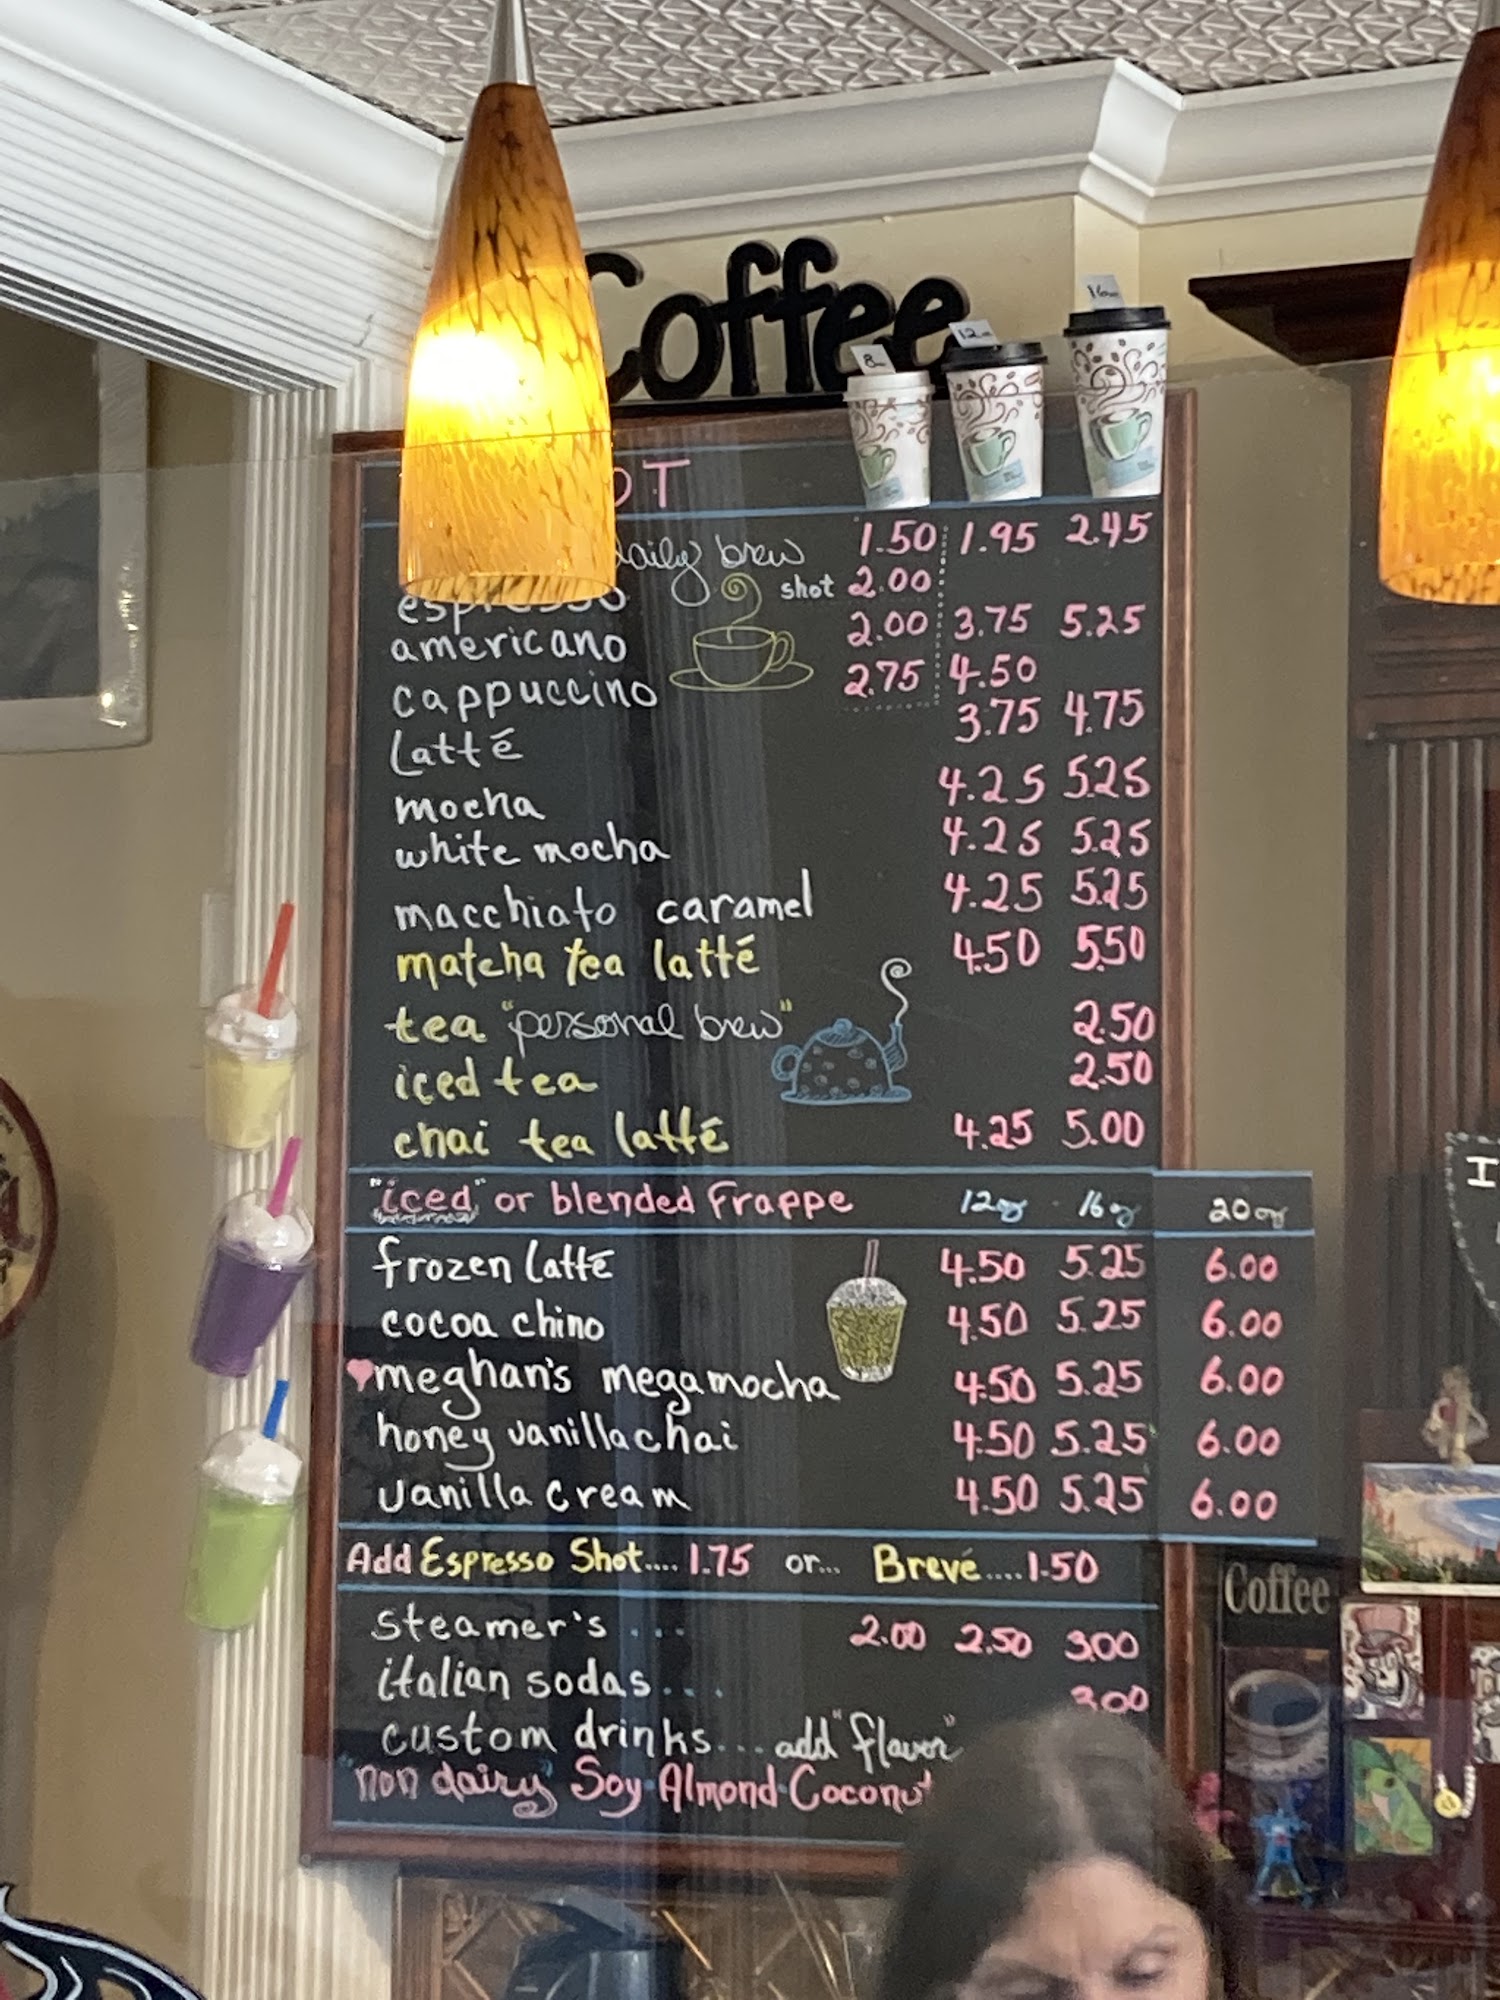 Coffee
8oz 12oz 16oz
OT
daily brew 1.50 1.95 2.45
espresso shot 2.00
americano 2.00 3.75 5.25
cappuccino 2.75 4.50
Latté 3.75 4.75
mocha 4.25 5.25
white mocha 4.25 5.25
macchiato caramel 4.25 5.25
matcha tea latté 4.50 5.50
tea "personal brew" 2.50
iced tea 2.50
chai tea latté 4.25 5.00
"iced" or blended Frappe 12oz 16oz 20oz
frozen latté 4.50 5.25 6.00
cocoa chino 4.50 5.25 6.00
meghan's megamocha 4.50 5.25 6.00
honey vanilla chai 4.50 5.25 6.00
vanilla cream 4.50 5.25 6.00
Add Espresso Shot.... 1.75 or... Brevé.... 1.50
steamer's ... 2.00 2.50 3.00
italian sodas ... 3.00
custom drinks... add "flavor"
"non dairy" Soy·Almond·Coconut
Coffee